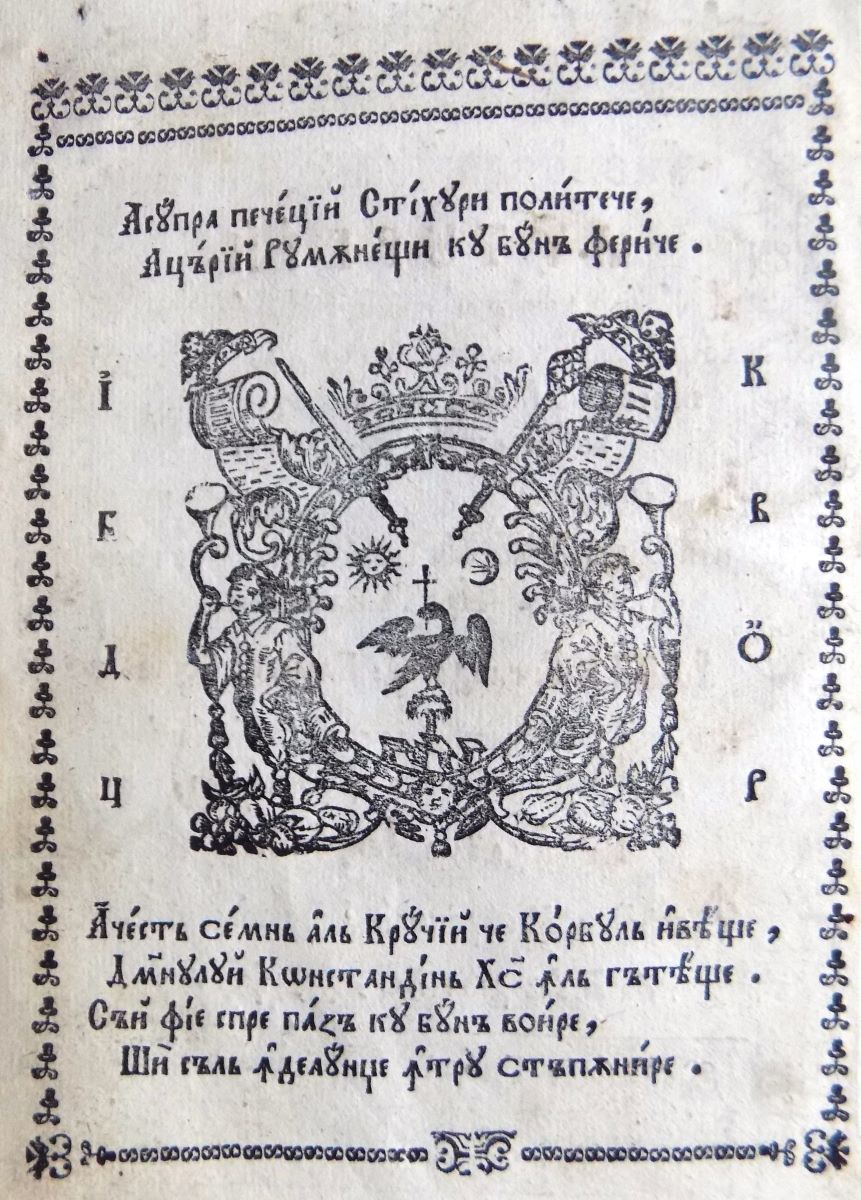 Асꙋ́пра пече́ций Сті́хꙋри поли́тече,
Ацъ́рїй Рꙋмѫне́щи кꙋ бꙋ́нъ фери́че.
І К
Б В
Д Ѻ
Ц Р
Аче́стъ се́мнь а́ль Крꙋ́чїй че Ко́рбꙋль и҆вѣ́ще,
Дм҃нꙋлꙋй Кѡнстанді́нь Хс҃ ꙟ҆ль гътѣ́ще.
Съй фі́е спре па́зъ кꙋ бꙋ́нъ вои́ре,
Ши҆ съль ꙟ҆делꙋ́нце ꙟ҆трꙋ стъпѫни́ре.